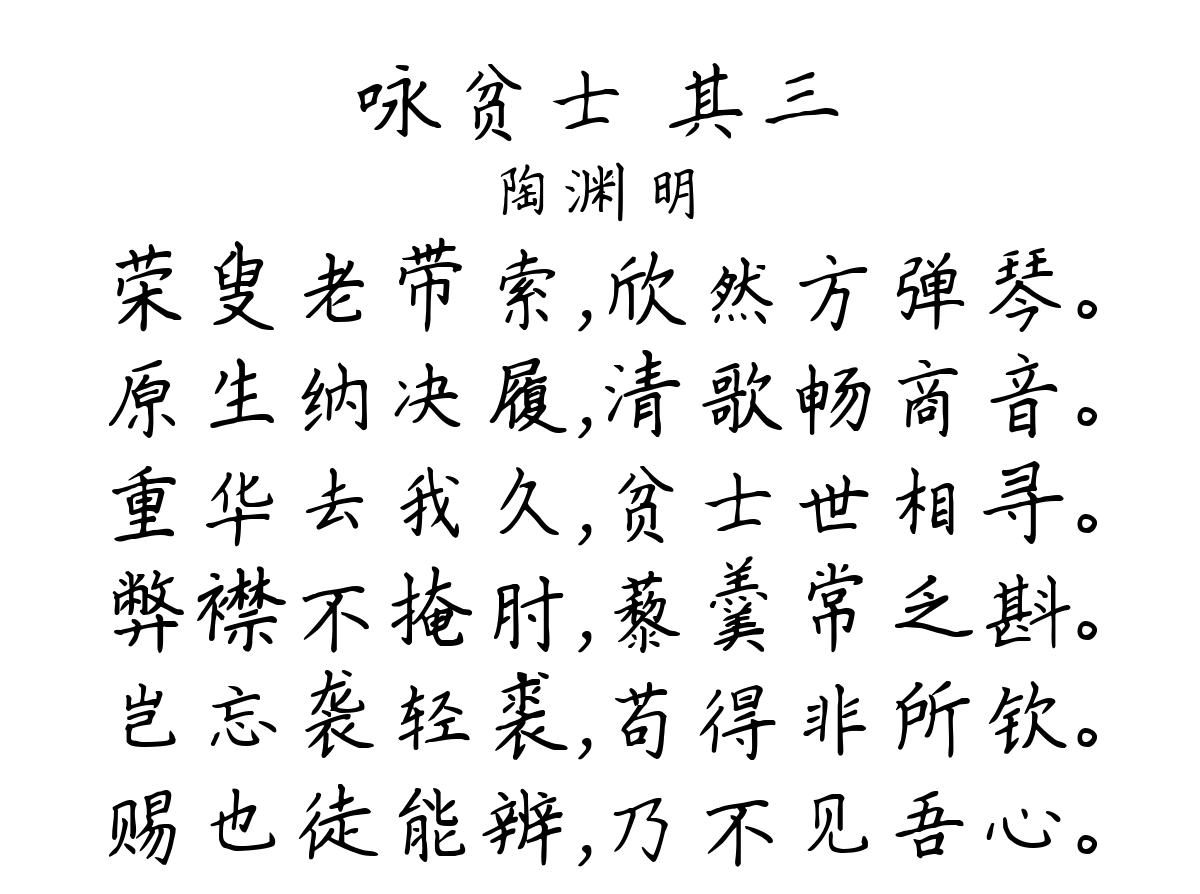 咏贫士 其三
陶渊明
荣叟老带索,欣然方弹琴。
原生纳决履,清歌畅商音。
重华去我久,贫士世相寻。
弊襟不掩肘,藜羹常乏斟。
岂忘袭轻裘,苟得非所钦。
赐也徒能辨,乃不见吾心。